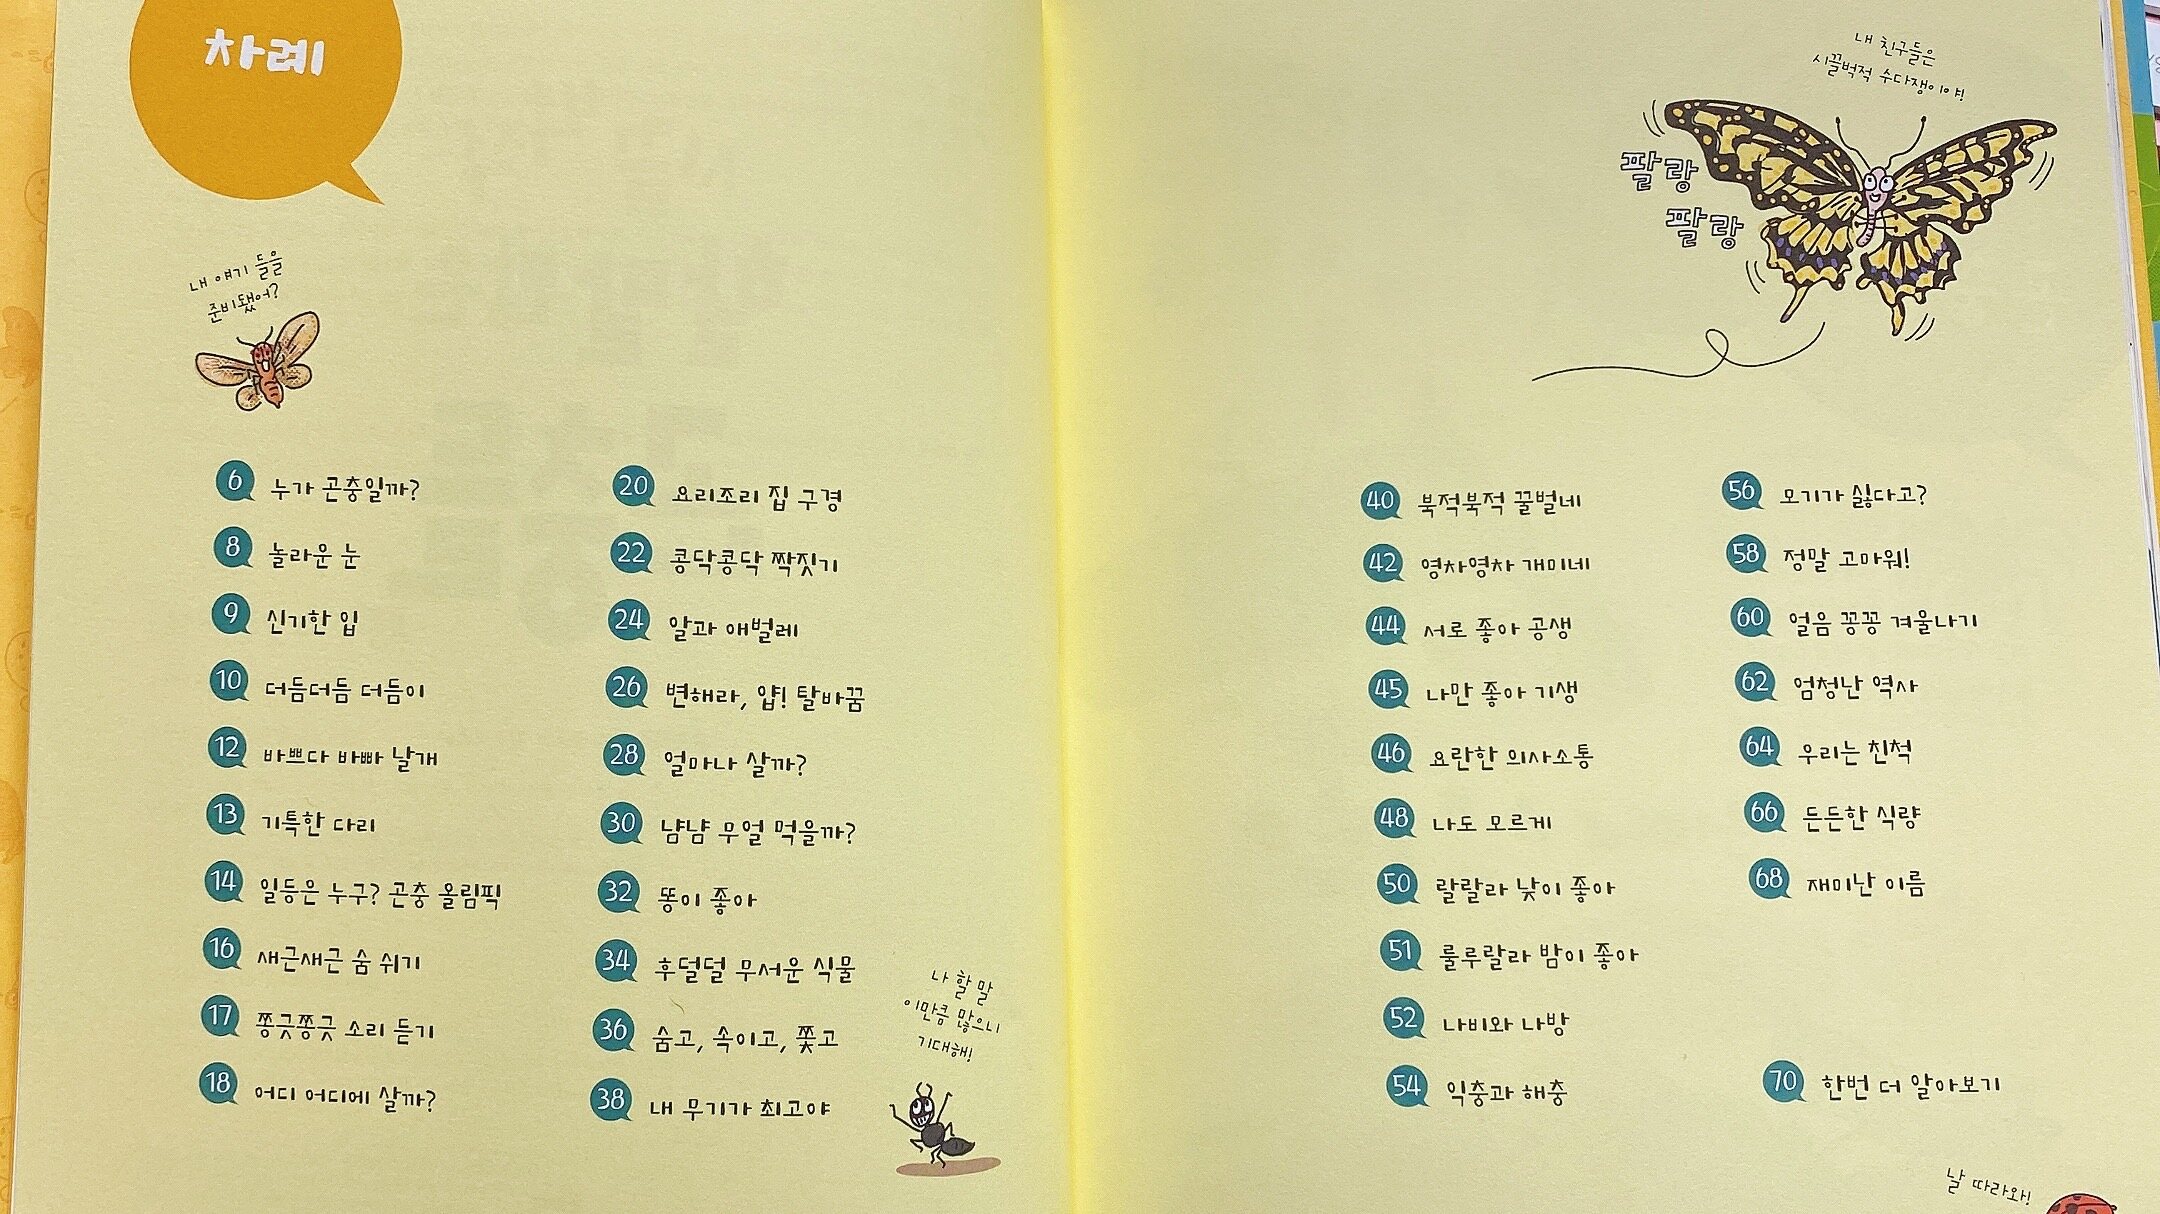 차례
내 얘기 들을
준비됐어?
6 누가 곤충일까?
8 놀라운 눈
9 신기한 입
10 더듬더듬 더듬이
12 바쁘다 바빠 날개
13 기특한 다리
14 일등은 누구? 곤충 올림픽
16 새근새근 숨 쉬기
17 쫑긋쫑긋 소리 듣기
18 어디 어디에 살까?
20 요리조리 집 구경
22 콩닥콩닥 짝짓기
24 알과 애벌레
26 변해라, 얍! 탈바꿈
28 얼마나 살까?
30 냠냠 무얼 먹을까?
32 똥이 좋아
34 후덜덜 무서운 식물
36 숨고, 속이고, 쫓고
38 내 무기가 최고야
나 할 말
이만큼 많으니
기대해!
내 친구들은
시끌벅적 수다쟁이야!
팔랑
팔랑
40 북적북적 꿀벌네
42 영차영차 개미네
44 서로 좋아 공생
45 나만 좋아 기생
46 요란한 의사소통
48 나도 모르게
50 랄랄라 낮이 좋아
51 룰루랄라 밤이 좋아
52 나비와 나방
54 익충과 해충
56 모기가 싫다고?
58 정말 고마워!
60 얼음 꽁꽁 겨울나기
62 엄청난 역사
64 우리는 친척
66 든든한 식량
68 재미난 이름
70 한번 더 알아보기
날 따라와!